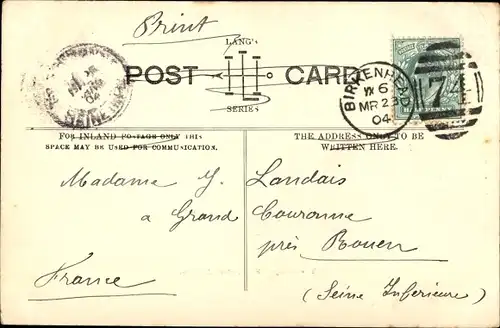 Print
LANG'S
POST CARD
SERIES
BIRKENHEAD
6
MR 23
04
74
FOR INLAND POSTAGE ONLY THIS
SPACE MAY BE USED FOR COMMUNICATION.
THE ADDRESS ONLY TO BE
WRITTEN HERE.
Madame Y. Landais
a Grand Couronne
près Rouen
France
(Seine Inférieure)